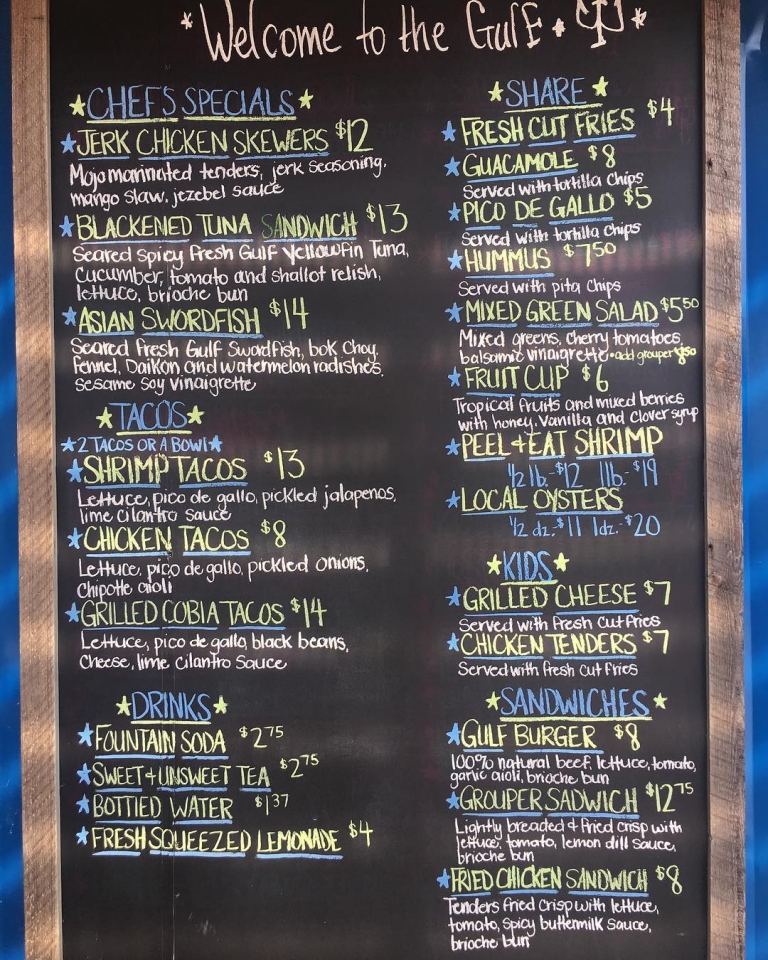 *Welcome to the Gulf*
CHEF'S SPECIALS
JERK CHICKEN SKEWERS $12
Mojo marinated tenders, jerk seasoning,
mango slaw, jezebel sauce
BLACKENED TUNA SANDWICH $13
Seared spicy fresh Gulf Yellowfin Tuna,
cucumber, tomato and shallot relish,
lettuce, brioche bun
ASIAN SWORDFISH $14
Seared fresh Gulf Swordfish, bok choy,
Fennel, Daikon and watermelon radishes,
sesame soy vinaigrette
TACOS
*2 TACOS OR A BOWL*
SHRIMP TACOS $13
Lettuce, pico de gallo, pickled jalapenos,
lime cilantro sauce
CHICKEN TACOS $8
Lettuce, pico de gallo, pickled onions,
chipotle aioli
GRILLED COBIA TACOS $14
Lettuce, pico de gallo, black beans,
cheese, lime cilantro sauce
DRINKS
FOUNTAIN SODA $2.75
SWEET + UNSWEET TEA $2.75
BOTTLED WATER $1.37
FRESH SQUEEZED LEMONADE $4
SHARE
FRESH CUT FRIES $4
GUACAMOLE $8
Served with tortilla chips
PICO DE GALLO $5
Served with tortilla chips
HUMMUS $7.50
Served with pita chips
MIXED GREEN SALAD $5.50
Mixed greens, cherry tomatoes,
balsamic vinaigrette • add grouper
FRUIT CUP $6
Tropical fruits and mixed berries
with honey, vanilla and clover syrup
PEEL + EAT SHRIMP
1/2 lb.-$12 1lb.-$19
LOCAL OYSTERS
1/2 dz.-$11 1dz.-$20
KIDS
GRILLED CHEESE $7
Served with fresh cut fries
CHICKEN TENDERS $7
Served with fresh cut fries
SANDWICHES
GULF BURGER $8
100% natural beef, lettuce, tomato,
garlic aioli, brioche bun
GROUPER SADWICH $12.75
Lightly breaded + fried crisp with
lettuce, tomato, lemon dill sauce,
brioche bun
FRIED CHICKEN SANDWICH $8
Tenders fried crisp with lettuce,
tomato, spicy buttermilk sauce,
brioche bun